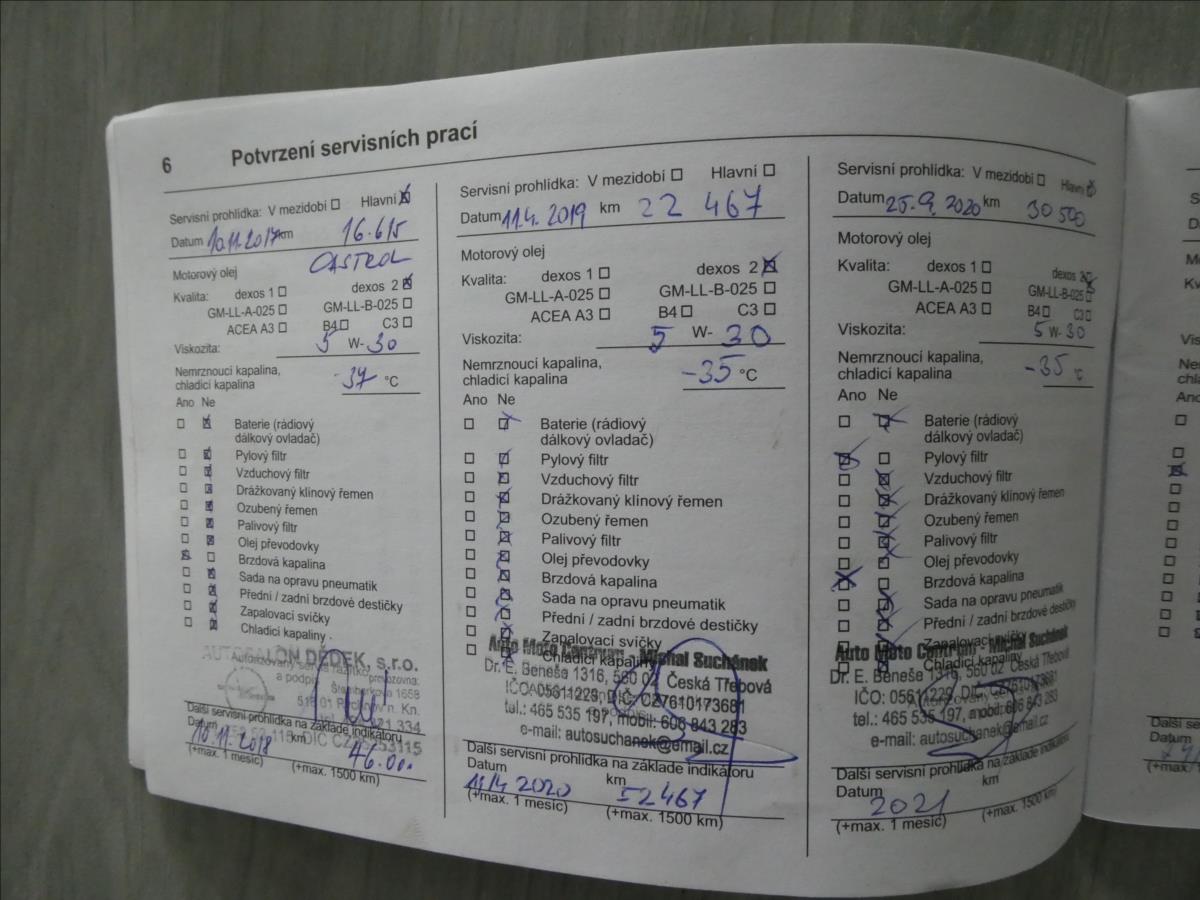 6 Potvrzení servisních prací
Servisní prohlídka: V mezidobí Hlavní
Datum 10.11.2017 km 16.615
Motorový olej CASTROL
Kvalita: dexos 1 dexos 2
GM-LL-A-025 GM-LL-B-025
ACEA A3 B4 C3
Viskozita: 5 W- 30
Nemrznoucí kapalina,
chladicí kapalina -37 °C
Ano Ne
Baterie (rádiový
dálkový ovladač)
Pylový filtr
Vzduchový filtr
Drážkovaný klínový řemen
Ozubený řemen
Palivový filtr
Olej převodovky
Brzdová kapalina
Sada na opravu pneumatik
Přední / zadní brzdové destičky
Zapalovací svíčky
Chladicí kapaliny
AUTOSALON DĚDEK, s.r.o.
Další servisní prohlídka na základě indikátoru
Datum km
10.11.2018 46.000
(+max. 1 měsíc) (+max. 1500 km)
Servisní prohlídka: V mezidobí Hlavní
Datum 11.4. 2019 km 22 467
Motorový olej
Kvalita: dexos 1 dexos 2
GM-LL-A-025 GM-LL-B-025
ACEA A3 B4 C3
Viskozita: 5 W- 30
Nemrznoucí kapalina,
chladicí kapalina -35 °C
Ano Ne
Baterie (rádiový
dálkový ovladač)
Pylový filtr
Vzduchový filtr
Drážkovaný klínový řemen
Ozubený řemen
Palivový filtr
Olej převodovky
Brzdová kapalina
Sada na opravu pneumatik
Přední / zadní brzdové destičky
Zapalovací svíčky
Chladicí kapaliny
Auto Moto Centrum - Michal Suchánek
Dr. E. Beneše 1316, 560 02 Česká Třebová
IČO: 05611229, DIČ: CZ7610173681
tel.: 465 535 197, mobil: 606 843 283
e-mail: autosuchanek@email.cz
Další servisní prohlídka na základě indikátoru
Datum km
11.4 2020 52467
(+max. 1 měsíc) (+max. 1500 km)
Servisní prohlídka: V mezidobí Hlavní
Datum 25.9. 2020 km 30 500
Motorový olej
Kvalita: dexos 1 dexos 2
GM-LL-A-025 GM-LL-B-025
ACEA A3 B4 C3
Viskozita: 5 W- 30
Nemrznoucí kapalina,
chladicí kapalina -35 °C
Ano Ne
Baterie (rádiový
dálkový ovladač)
Pylový filtr
Vzduchový filtr
Drážkovaný klínový řemen
Ozubený řemen
Palivový filtr
Olej převodovky
Brzdová kapalina
Sada na opravu pneumatik
Přední / zadní brzdové destičky
Zapalovací svíčky
Chladicí kapaliny
Auto Moto Centrum - Michal Suchánek
Dr. E. Beneše 1316, 560 02 Česká Třebová
IČO: 05611229, DIČ: CZ7610173681
tel.: 465 535 197, mobil: 606 843 283
e-mail: autosuchanek@email.cz
Další servisní prohlídka na základě indikátoru
Datum km
2021
(+max. 1 měsíc) (+max. 1500 km)